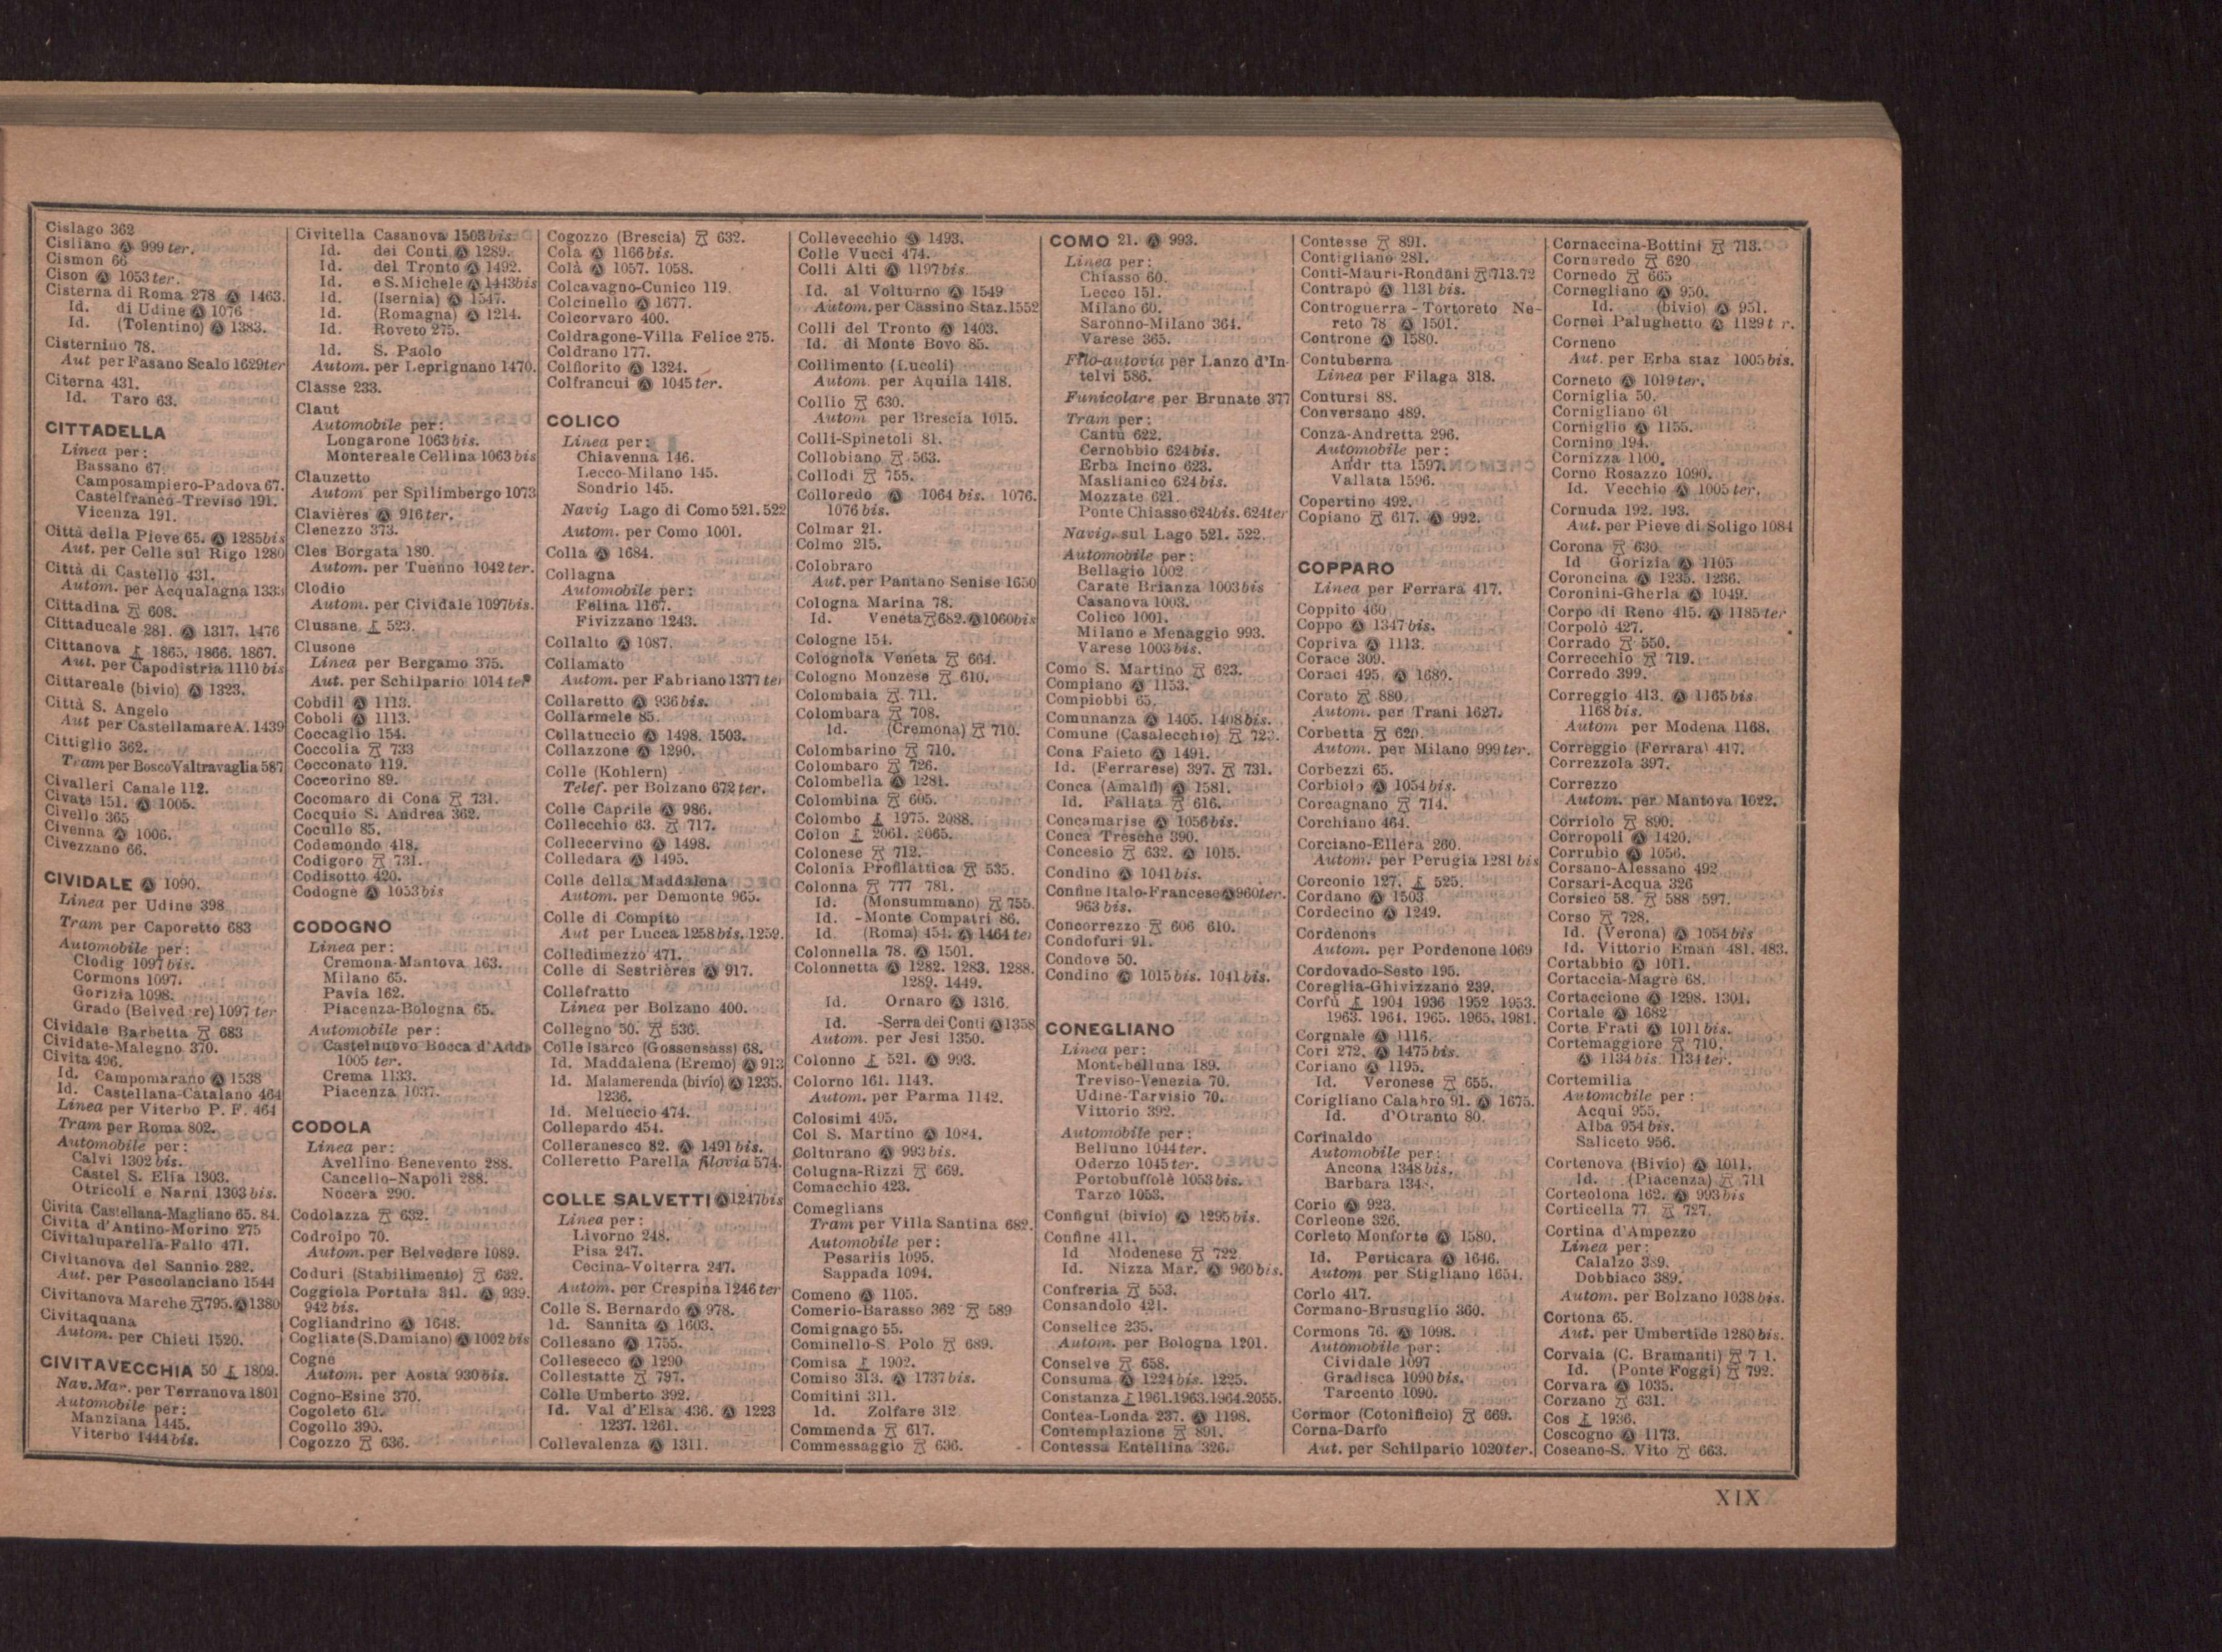 Cislago 362
Cisliano Ⓐ 999 ter.
Cismon 66
Cison Ⓐ 1053 ter.
Cisterna di Roma 278 Ⓐ 1463.
Id. di Udine Ⓐ 1076
Id. (Tolentino) Ⓐ 1383.
Cisternino 78.
Aut per Fasano Scalo 1629 ter
Citerna 431.
Id. Taro 63.
CITTADELLA
Linea per:
Bassano 67.
Camposampiero-Padova 67.
Castelfranco-Treviso 191.
Vicenza 191.
Città della Pieve 65. Ⓐ 1285 bis
Aut. per Celle sul Rigo 1280
Città di Castello 431.
Autom. per Acqualagna 1333
Cittadina 608.
Cittaducale 281. Ⓐ 1317. 1476
Cittanova 1865. 1866. 1867.
Aut. per Capodistria 1110 bis
Cittareale (bivio) Ⓐ 1323.
Città S. Angelo
Aut per Castellamare A. 1439
Cittiglio 362.
Tram per Bosco Valtravaglia 587
Civalleri Canale 112.
Civate 151. Ⓐ 1005.
Civello 365
Civenna Ⓐ 1006.
Civezzano 66.
CIVIDALE Ⓐ 1090.
Linea per Udine 398
Tram per Caporetto 683
Automobile per:
Clodig 1097 bis.
Cormons 1097.
Gorizia 1098.
Grado 1097 ter
Cividale Barbetta 683
Cividate-Malegno 370.
Civita 496.
Id. Campomarano Ⓐ 1538
Id. Castellana-Catalano 464
Linea per Viterbo P. F. 464
Tram per Roma 802.
Automobile per:
Calvi 1302 bis.
Castel S. Elia 1303.
Otricoli e Narni 1303 bis.
Civita Castellana-Magliano 65. 84.
Civita d'Antino-Morino 275
Civitaluparella-Fallo 471.
Civitanova del Sannio 282.
Aut. per Pescolanciano 1544
Civitanova Marche 795. Ⓐ 1380
Civitaquana
Autom. per Chieti 1520.
CIVITAVECCHIA 50 1809.
Nav. Mar. per Terranova 1801
Automobile per:
Manziana 1445.
Viterbo 1444 bis.
Civitella Casanova 1503 bis
Id. dei Conti Ⓐ 1289.
Id. del Tronto Ⓐ 1492.
Id. e S. Michele Ⓐ 1443 bis
Id. (Isernia) Ⓐ 1547.
Id. (Romagna) Ⓐ 1214.
Id. Roveto 275.
Id. S. Paolo
Autom. per Leprignano 1470.
Classe 233.
Claut
Automobile per:
Longarone 1063 bis.
Montereale Cellina 1063 bis
Clauzetto
Autom per Spilimbergo 1073
Clavières Ⓐ 916 ter.
Clenezzo 373.
Cles Borgata 180.
Autom. per Tuenno 1042 ter.
Clodio
Autom. per Cividale 1097 bis.
Clusane 523.
Clusone
Linea per Bergamo 375.
Aut. per Schilpario 1014 ter
Cobdil Ⓐ 1113.
Coboli Ⓐ 1113.
Coccaglio 154.
Coccolia 733
Cocconato 119.
Coccorino 89.
Cocomaro di Cona 731.
Cocquio S. Andrea 362.
Cocullo 85.
Codemondo 418.
Codigoro 731.
Codisotto 420.
Codognè Ⓐ 1053 bis
CODOGNO
Linea per:
Cremona-Mantova 163.
Milano 65.
Pavia 162.
Piacenza-Bologna 65.
Automobile per:
Castelnuovo Bocca d'Adda
1005 ter.
Crema 1133.
Piacenza 1037.
CODOLA
Linea per:
Avellino Benevento 288.
Cancello-Napoli 288.
Nocera 290.
Codolazza 632.
Codroipo 70.
Autom. per Belvedere 1089.
Coduri (Stabilimento) 632.
Coggiola Portula 341. Ⓐ 939.
942 bis.
Cogliandrino Ⓐ 1648.
Cogliate (S. Damiano) Ⓐ 1002 bis
Cogne
Autom. per Aosta 930 bis.
Cogno-Esine 370.
Cogoleto 61.
Cogollo 390.
Cogozzo 636.
Cogozzo (Brescia) 632.
Cola Ⓐ 1166 bis.
Colà Ⓐ 1057. 1058.
Colcavagno-Cunico 119.
Colcinello Ⓐ 1677.
Colcorvaro 400.
Coldragone-Villa Felice 275.
Coldrano 177.
Colfiorito Ⓐ 1324.
Colfrancui Ⓐ 1045 ter.
COLICO
Linea per:
Chiavenna 146.
Lecco-Milano 145.
Sondrio 145.
Navig Lago di Como 521. 522
Autom. per Como 1001.
Colla Ⓐ 1684.
Collagna
Automobile per:
Felina 1167.
Fivizzano 1243.
Collalto Ⓐ 1087.
Collamato
Autom. per Fabriano 1377 ter
Collaretto Ⓐ 936 bis.
Collarmele 85.
Collatuccio Ⓐ 1498. 1503.
Collazzone Ⓐ 1290.
Colle (Kohlern)
Telef. per Bolzano 672 ter.
Colle Caprile Ⓐ 986.
Collecchio 63. 717.
Collecervino Ⓐ 1498.
Colledara Ⓐ 1495.
Colle della Maddalena
Autom. per Demonte 965.
Colle di Compito
Aut per Lucca 1258 bis. 1259.
Colledimezzo 471.
Colle di Sestrières Ⓐ 917.
Collefratto
Linea per Bolzano 400.
Collegno 50. 536.
Colle Isarco (Gossensass) 68.
Id. Maddalena (Eremo) Ⓐ 913
Id. Malamerenda (bivio) Ⓐ 1235.
1236.
Id. Meluccio 474.
Collepardo 454.
Colleranesco 82. Ⓐ 1491 bis.
Colleretto Parella filovia 574.
COLLE SALVETTI Ⓐ 1247 bis
Linea per:
Livorno 248.
Pisa 247.
Cecina-Volterra 247.
Autom. per Crespina 1246 ter
Colle S. Bernardo Ⓐ 978.
Id. Sannita Ⓐ 1603.
Collesano Ⓐ 1755.
Collesecco Ⓐ 1290
Collestatte 797.
Colle Umberto 392.
Id. Val d'Elsa 436. Ⓐ 1223
1237. 1261.
Collevalenza Ⓐ 1311.
Collevecchio Ⓐ 1493.
Colle Vucci 474.
Colli Alti Ⓐ 1197 bis.
Id. al Volturno Ⓐ 1549
Autom. per Cassino Staz. 1552
Colli del Tronto Ⓐ 1403.
Id. di Monte Bovo 85.
Collimento (Lucoli)
Autom. per Aquila 1418.
Collio 630.
Autom per Brescia 1015.
Colli-Spinetoli 81.
Collobiano 563.
Collodi 755.
Colloredo Ⓐ 1064 bis. 1076.
1076 bis.
Colmar 21.
Colmo 215.
Colobraro
Aut. per Pantano Senise 1650
Cologna Marina 78.
Id. Veneta 682. Ⓐ 1060 bis
Cologne 154.
Colognola Veneta 664.
Cologno Monzese 610.
Colombaia 711.
Colombara 708.
Id. (Cremona) 710.
Colombarino 710.
Colombaro 726.
Colombella Ⓐ 1281.
Colombina 605.
Colombo 1975. 2088.
Colon 2061. 2065.
Colonese 712.
Colonia Profilattica 535.
Colonna 777 781.
Id. (Monsummano) 755.
Id. -Monte Compatri 86.
Id (Roma) 454. Ⓐ 1464 ter
Colonnella 78. Ⓐ 1501.
Colonnetta Ⓐ 1282. 1283. 1288.
1289. 1449.
Id. Ornaro Ⓐ 1316.
Id. -Serra dei Conti Ⓐ 1358
Autom. per Jesi 1350.
Colonno 521. Ⓐ 993.
Colorno 161. 1143.
Autom. per Parma 1142.
Colosimi 495.
Col S. Martino Ⓐ 1084.
Colturano Ⓐ 993 bis.
Colugna-Rizzi 669.
Comacchio 423.
Comeglians
Tram per Villa Santina 682.
Automobile per:
Pesariis 1095.
Sappada 1094.
Comeno Ⓐ 1105.
Comerio-Barasso 362 589
Comignago 55.
Cominello-S. Polo 689.
Comisa 1902.
Comiso 313. Ⓐ 1737 bis.
Comitini 311.
Id. Zolfare 312
Commenda 617.
Commessaggio 636.
COMO 21. Ⓐ 993.
Linea per:
Chiasso 60.
Lecco 151.
Milano 60.
Saronno-Milano 364.
Varese 365.
Filo-autovia per Lanzo d'In-
telvi 586.
Funicolare per Brunate 377
Tram per:
Cantù 622.
Cernobbio 624 bis.
Erba Incino 623.
Maslianico 624 bis.
Mozzate 621.
Ponte Chiasso 624 bis. 624 ter
Navig. sul Lago 521. 522.
Automobile per:
Bellagio 1002
Carate Brianza 1003 bis
Casanova 1003.
Colico 1001.
Milano e Menaggio 993.
Varese 1003 bis.
Como S. Martino 623.
Compiano Ⓐ 1153.
Compiobbi 65.
Comunanza Ⓐ 1405. 1408 bis.
Comune (Casalecchio)
Cona Faieto Ⓐ 1491.
Id. (Ferrarese) 397. 731.
Conca (Amalfi) Ⓐ 1581.
Id. Fallata 616.
Concamarise Ⓐ 1056 bis.
Conca Tresche 390.
Concesio 632. Ⓐ 1015.
Condino Ⓐ 1041 bis.
Confine Italo-Francese Ⓐ 960 ter.
963 bis.
Concorrezzo 606 610.
Condofuri 91.
Condove 50.
Condino Ⓐ 1015 bis. 1041 bis.
CONEGLIANO
Linea per:
Montebelluna 189.
Treviso-Venezia 70.
Udine-Tarvisio 70.
Vittorio 392.
Automobile per:
Belluno 1044 ter.
Oderzo 1045 ter.
Portobuffolè 1053 bis.
Tarzo 1053.
Configni (bivio) Ⓐ 1295 bis.
Confine 411.
Id Modenese 722
Id. Nizza Mar. Ⓐ 960 bis.
Confreria 553.
Consandolo 421.
Conselice 235.
Autom. per Bologna 1201.
Conselve 658.
Consuma Ⓐ 1224 bis. 1225.
Constanza 1961. 1963. 1964. 2055.
Contea-Londa 237. Ⓐ 1198.
Contemplazione 891.
Contessa Entellina 326.
Contesse 891.
Contigliano 281.
Conti-Mauri-Rondani 713.72
Contrapò Ⓐ 1131 bis.
Controguerra - Tortoreto Ne-
reto 78 Ⓐ 1501.
Controne Ⓐ 1580.
Contuberna
Linea per Filaga 318.
Contursi 88.
Conversano 489.
Conza-Andretta 296.
Automobile per:
Andr tta 1597.
Vallata 1596.
Copertino 492.
Copiano 617. Ⓐ 992.
COPPARO
Linea per Ferrara 417.
Coppito 460
Coppo Ⓐ 1347 bis.
Copriva Ⓐ 1113.
Corace 309.
Coraci 495. Ⓐ 1680.
Corato 880.
Autom. per Trani 1627.
Corbetta 620.
Autom. per Milano 999 ter.
Corbezzi 65.
Corbiolo Ⓐ 1054 bis.
Corcagnano 714.
Corchiano 464.
Corciano-Ellera 260.
Autom. per Perugia 1281 bis
Corconio 127. 525.
Cordano Ⓐ 1503
Cordecino Ⓐ 1249.
Cordenons
Autom. per Pordenone 1069
Cordovado-Sesto 195.
Coreglia-Ghivizzano 239.
Corfù 1904 1936 1952 1953.
1963. 1964. 1965. 1965. 1981.
Corgnale Ⓐ 1116.
Cori 272. Ⓐ 1475 bis.
Coriano Ⓐ 1195.
Id. Veronese 655.
Corigliano Calabro 91. Ⓐ 1675.
Id. d'Otranto 80.
Corinaldo
Automobile per:
Ancona 1348 bis.
Barbara
Corio Ⓐ 923.
Corleone 326.
Corleto Monforte Ⓐ 1580.
Id. Perticara Ⓐ 1646.
Autom per Stigliano 1654.
Corlo 417.
Cormano-Brusuglio 360.
Cormons 76. Ⓐ 1098.
Automobile per:
Cividale 1097
Gradisca 1090 bis.
Tarcento 1090.
Cormor (Cotonificio) 669.
Corna-Darfo
Aut. per Schilpario 1020 ter.
Cornaccina-Bottini 713.
Cornaredo 620
Cornedo 665
Cornegliano Ⓐ 950.
Id. (bivio) Ⓐ 951.
Cornei Palughetto Ⓐ 1129 t r.
Corneno
Aut. per Erba staz 1005 bis.
Corneto Ⓐ 1019 ter.
Corniglia 50.
Cornigliano 61
Corniglio Ⓐ 1155.
Cornino 194.
Cornizza 1100.
Corno Rosazzo 1090.
Id. Vecchio Ⓐ 1005 ter.
Cornuda 192. 193.
Aut. per Pieve di Soligo 1084
Corona 630.
Id Gorizia Ⓐ 1105
Coroncina Ⓐ 1235. 1236.
Coronini-Gherla Ⓐ 1049.
Corpo di Reno 415. Ⓐ 1185 ter
Corpolò 427.
Corrado 550.
Correcchio 719.
Corredo 399.
Correggio 413. Ⓐ 1165 bis
1168 bis.
Autom per Modena 1168.
Correggio (Ferrara) 417.
Correzzola 397.
Correzzo
Autom. per Mantova 1022.
Corriolo 890.
Corropoli Ⓐ 1420.
Corrubio Ⓐ 1056.
Corsano-Alessano 492
Corsari-Acqua 326
Corsico 58. 588 597.
Corso 728.
Id. (Verona) Ⓐ 1054 bis
Id. Vittorio Eman 481. 483.
Cortabbio Ⓐ 1011.
Cortaccia-Magrè 68.
Cortaccione Ⓐ 1298. 1301.
Cortale Ⓐ 1682
Corte Frati Ⓐ 1011 bis.
Cortemaggiore 710.
Ⓐ 1134 bis. 1134 ter.
Cortemilia
Automobile per:
Acqui 955.
Alba 954 bis.
Saliceto 956.
Cortenova (Bivio) Ⓐ 1011.
Id. (Piacenza) 711
Corteolona 162. Ⓐ 993 bis
Corticella 77 727.
Cortina d'Ampezzo
Linea per:
Calalzo 389.
Dobbiaco 389.
Autom. per Bolzano 1038 bis.
Cortona 65.
Aut. per Umbertide 1280 bis.
Corvaia (C. Bramanti) 7 1.
Id. (Ponte Foggi) 792.
Corvara Ⓐ 1035.
Corzano 631.
Cos 1936.
Coscogno Ⓐ 1173.
Coseano-S. Vito 663.
XIX